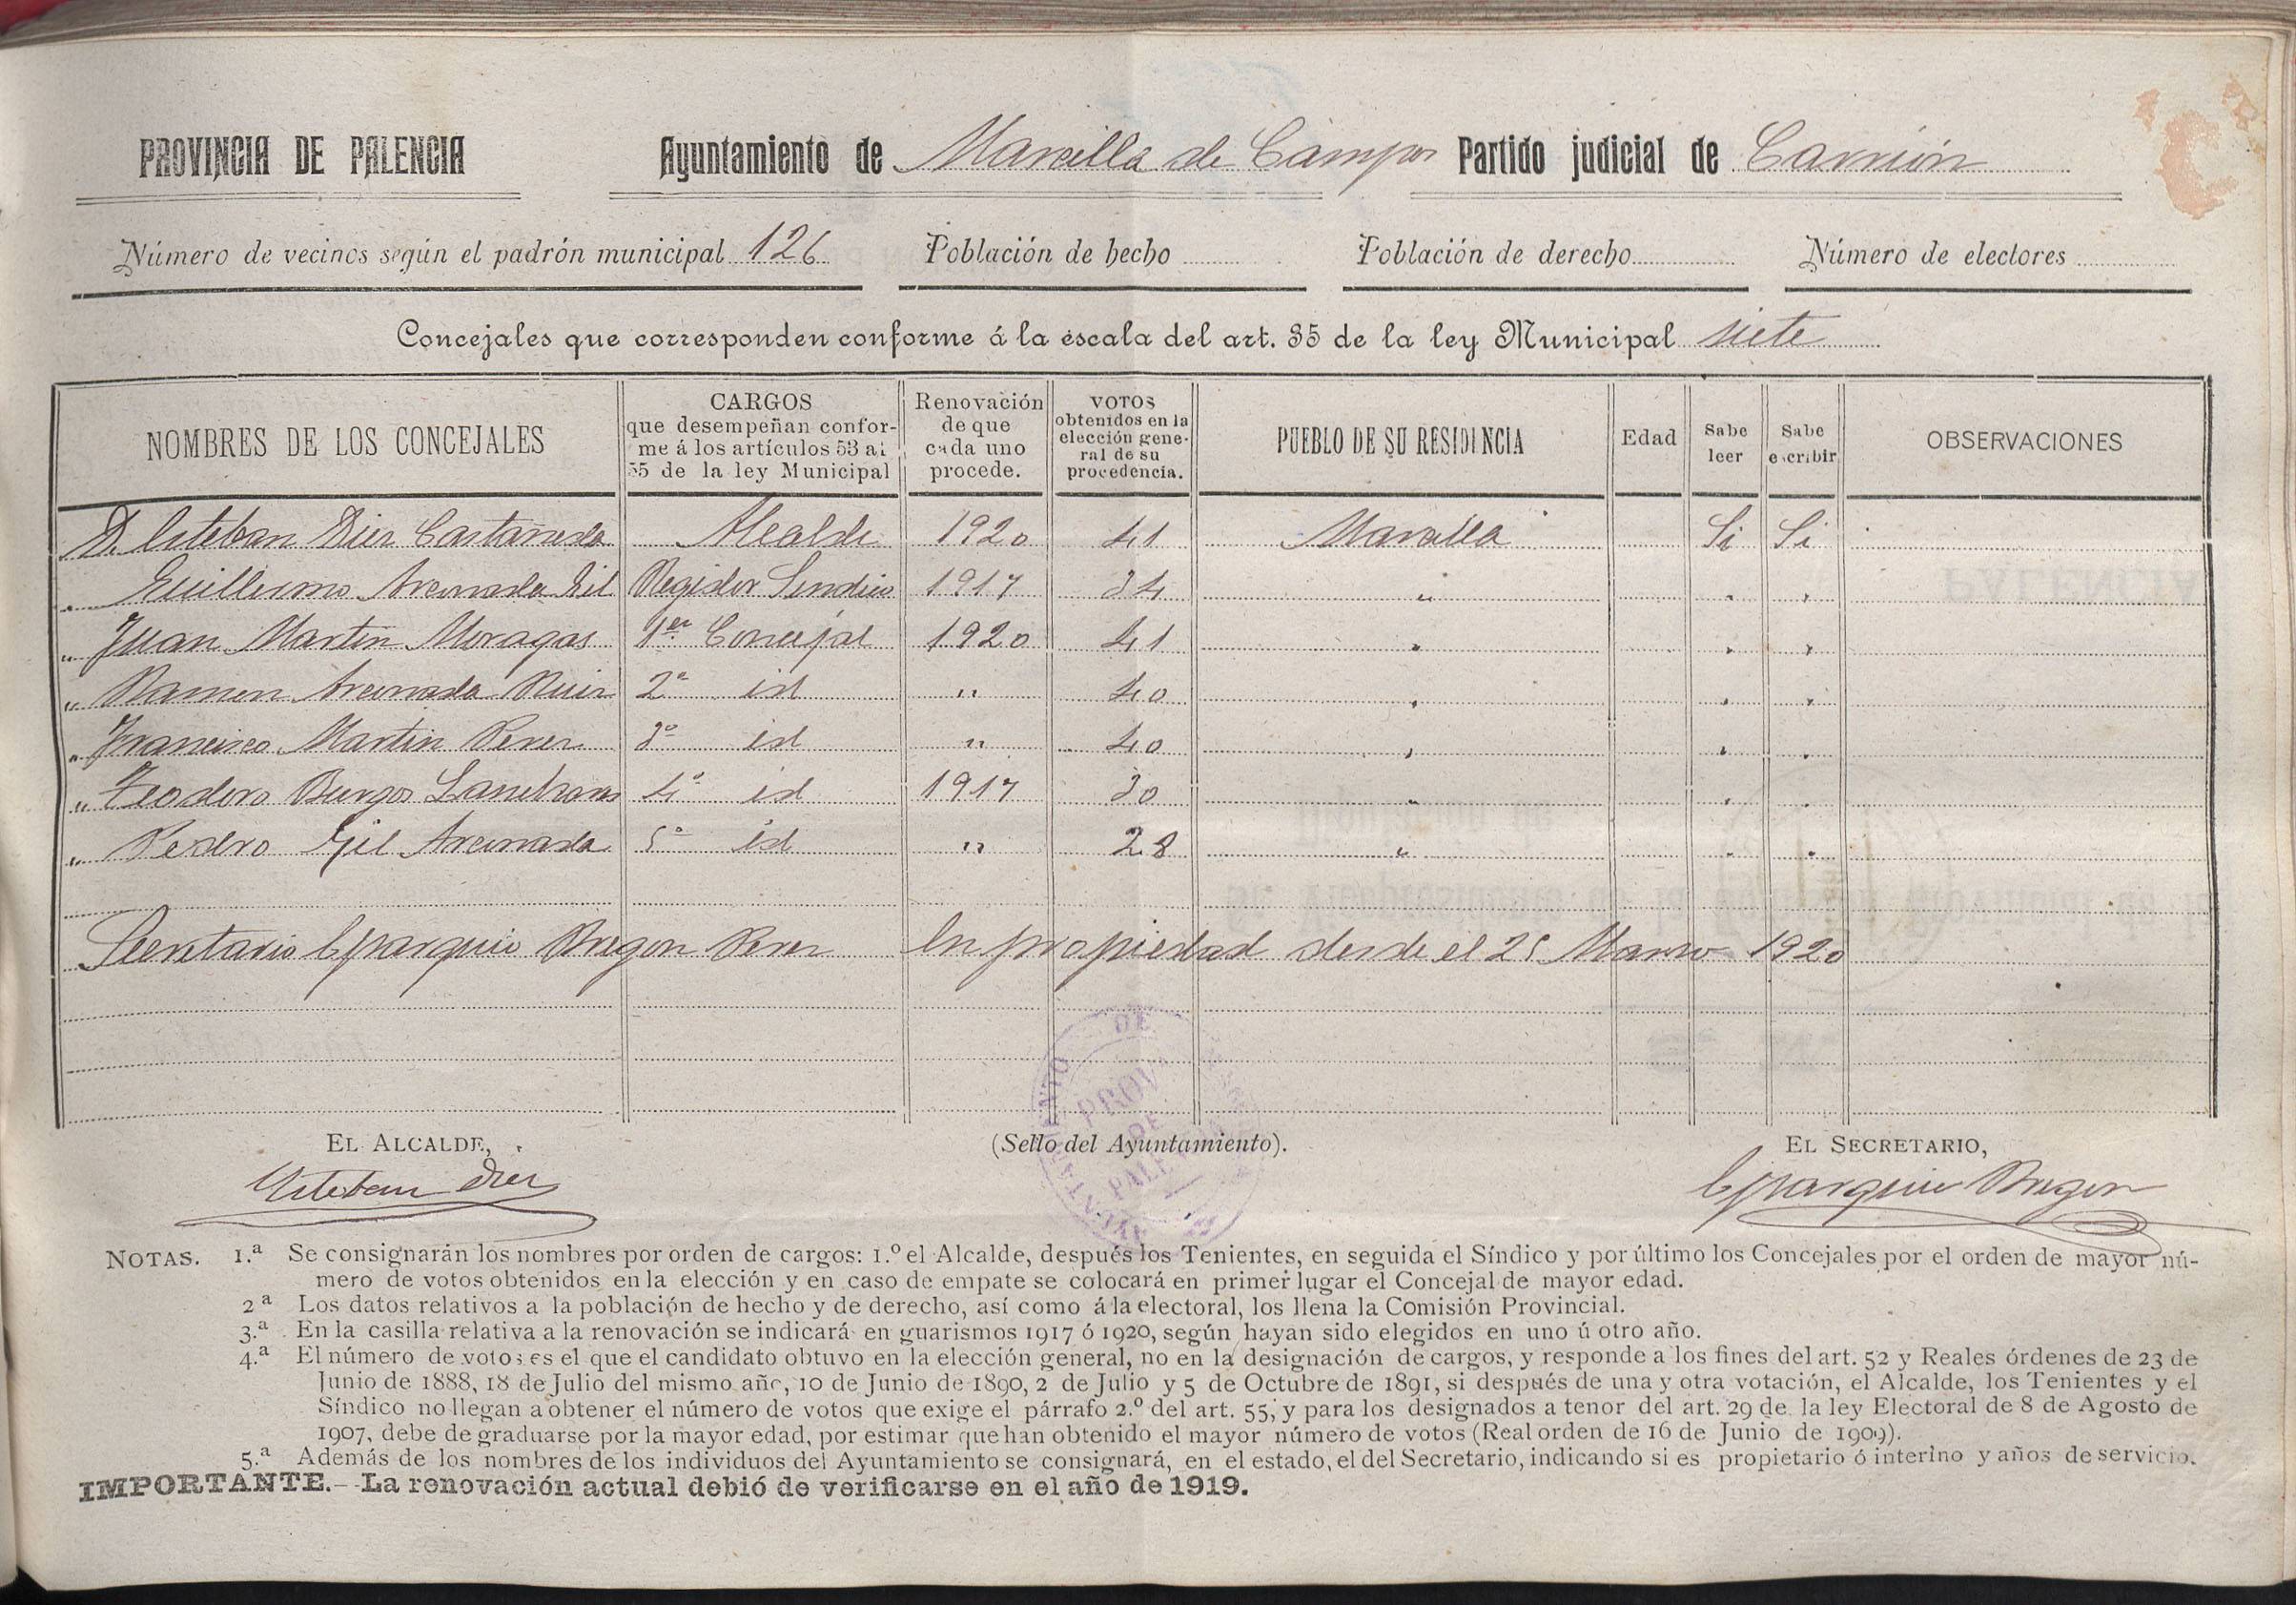 PROVINCIA DE PALENCIA Ayuntamiento de Marcilla de Campos Partido judicial de Carrión
Número de vecinos según el padrón municipal 126 Población de hecho Población de derecho Número de electores
Concejales que corresponden conforme á la escala del art. 35 de la ley Municipal siete
NOMBRES DE LOS CONCEJALES
CARGOS
que desempeñan confor-
me á los artículos 53 al
55 de la ley Municipal
Renovación
de que
cada uno
procede.
VOTOS
obtenidos en la
elección gene-
ral de su
procedencia.
PUEBLO DE SU RESIDENCIA
Edad
Sabe
leer
Sabe
escribir
OBSERVACIONES
D. Esteban Diez Castañeda Alcalde 1920 41 Marcilla Si Si
" Guillermo Arconada Gil Regidor Sindico 1917 34 " " "
" Juan Martin Moragas 1er Concejal 1920 41 " " "
" Ramon Arconada Ruiz 2º id " 40 " " "
" Francisco Martin Perez 3º id " 40 " " "
" Teodoro Burgos 4º id 1917 30 " " "
" Pedro Gil Arconada 5º id " 28 " " "
Secretario Eparquio Bregon Perez En propiedad desde el 25 Marzo 1920
EL ALCALDE, (Sello del Ayuntamiento). EL SECRETARIO,
Esteban Diez Eparquio Bregon
AYUNTAMIENTO DE
PROVA
DE
PALENCIA
NOTAS. 1.ª Se consignarán los nombres por orden de cargos: 1.º el Alcalde, después los Tenientes, en seguida el Síndico y por último los Concejales por el orden de mayor nú-
mero de votos obtenidos en la elección y en caso de empate se colocará en primer lugar el Concejal de mayor edad.
2ª Los datos relativos a la población de hecho y de derecho, así como á la electoral, los llena la Comisión Provincial.
3.ª En la casilla relativa a la renovación se indicará en guarismos 1917 ó 1920, según hayan sido elegidos en uno ú otro año.
4.ª El número de votos es el que el candidato obtuvo en la elección general, no en la designación de cargos, y responde a los fines del art. 52 y Reales órdenes de 23 de
Junio de 1888, 18 de Julio del mismo año, 10 de Junio de 1890, 2 de Julio y 5 de Octubre de 1891, si después de una y otra votación, el Alcalde, los Tenientes y el
Síndico no llegan a obtener el número de votos que exige el párrafo 2.º del art. 55, y para los designados a tenor del art. 29 de la ley Electoral de 8 de Agosto de
1907, debe de graduarse por la mayor edad, por estimar que han obtenido el mayor número de votos (Real orden de 16 de Junio de 1909).
5.ª Además de los nombres de los individuos del Ayuntamiento se consignará, en el estado, el del Secretario, indicando si es propietario ó interino y años de servicio.
IMPORTANTE.—La renovación actual debió de verificarse en el año de 1919.